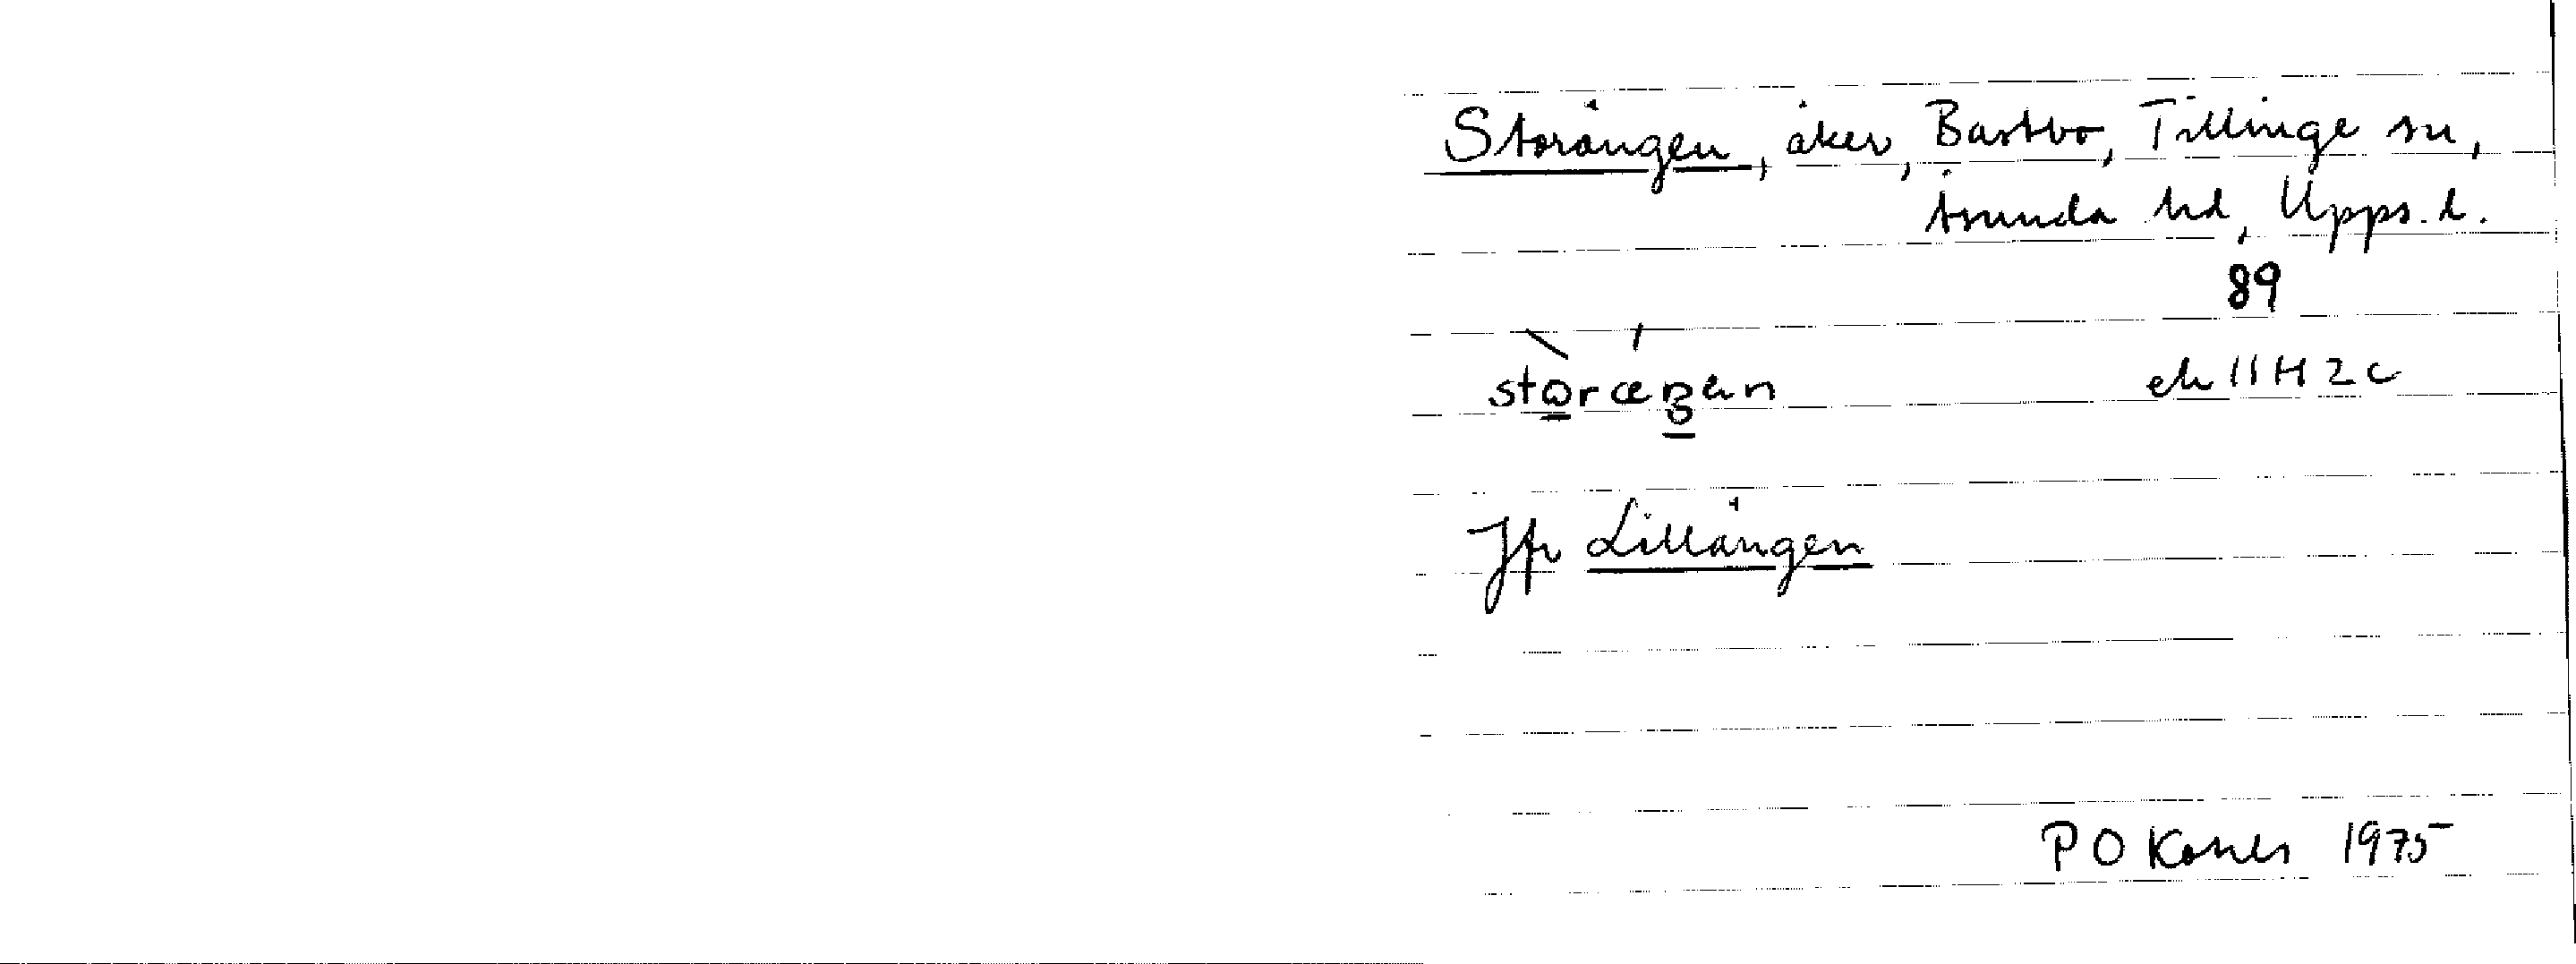 Storängen, åker, Bastbo, Tillinge sn,
Åsunda hd, Upps. l.
89
ek 11H 2c
Jfr Lillängen
P O 1975